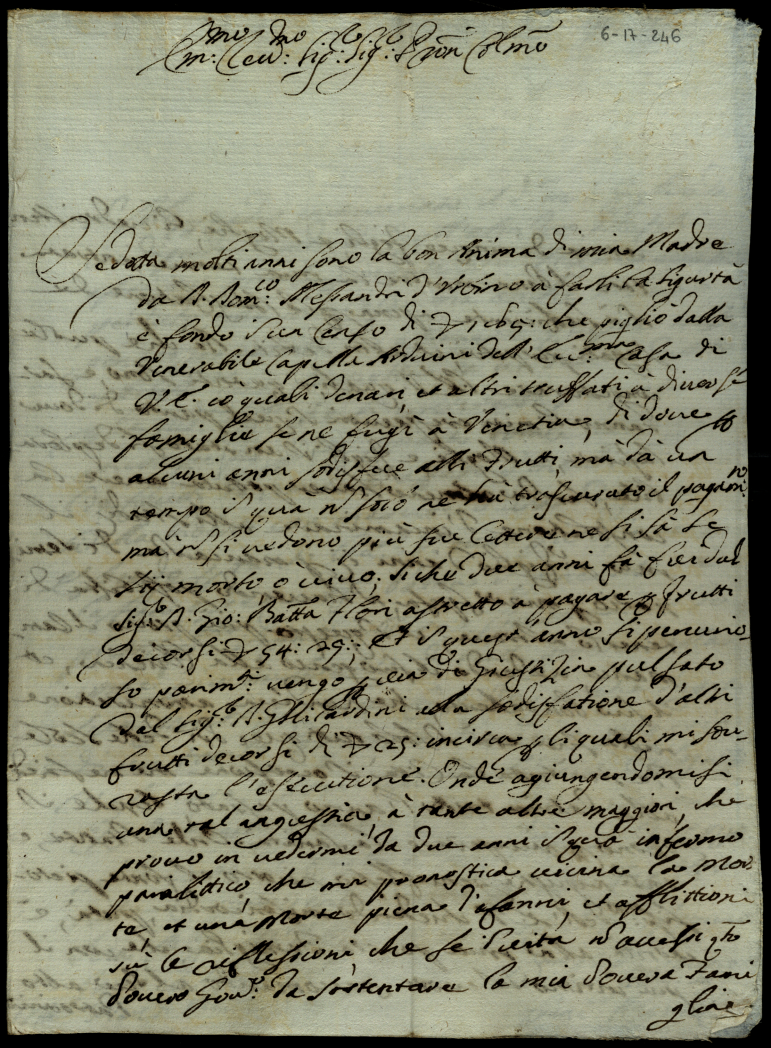 6-17-246
Ill.mo e Rev.mo Sig.re Sig.re Pron Col.mo
Sedotta molti anni sono la bon Anima di mia Madre
da D. Dom.co Alessandri d'Urbino à farli la sigurtà
è fondo un Censo di 165: che pigliò dalla
Venerabile Capella Arduini dell' Ecc.ma Casa di
V.E. cò quali denari et altri truffati à diverse
famiglie se ne fugì à Venetia, di dove
alcuni anni sodisfece alli Frutti, mà dà un
tempo in quà nò solo ne hà trascurato il pagam.to
mà nò si vedono più sue lettere ne si sà se
sij morto, ò vivo; siche due anni fà fui dal
Sig.re D. Gio: Batta Flori astretto à pagare frutti
decorsi 54: 25:; Et in quest' anno sì penurio-
so parim.te vengo via di Giustizia pulsato
dal Sig.re D. Ghirardini alla sodisfatione d'altri
frutti decorsi di 25: incirca li quali mi sov-
rasta l'esecutione. Onde agiungendomisi
una tal angustia, à tante altre maggiori, che
provo in vedermi da due anni in quà infermo
paralitico, che mi pronostica vicina la mor-
te, et una Morte piena d'affanni, et afflittioni
sù le riflessioni che se nò avessi q.to
povero Gov.o da sostentare la mia povera Fami
glia